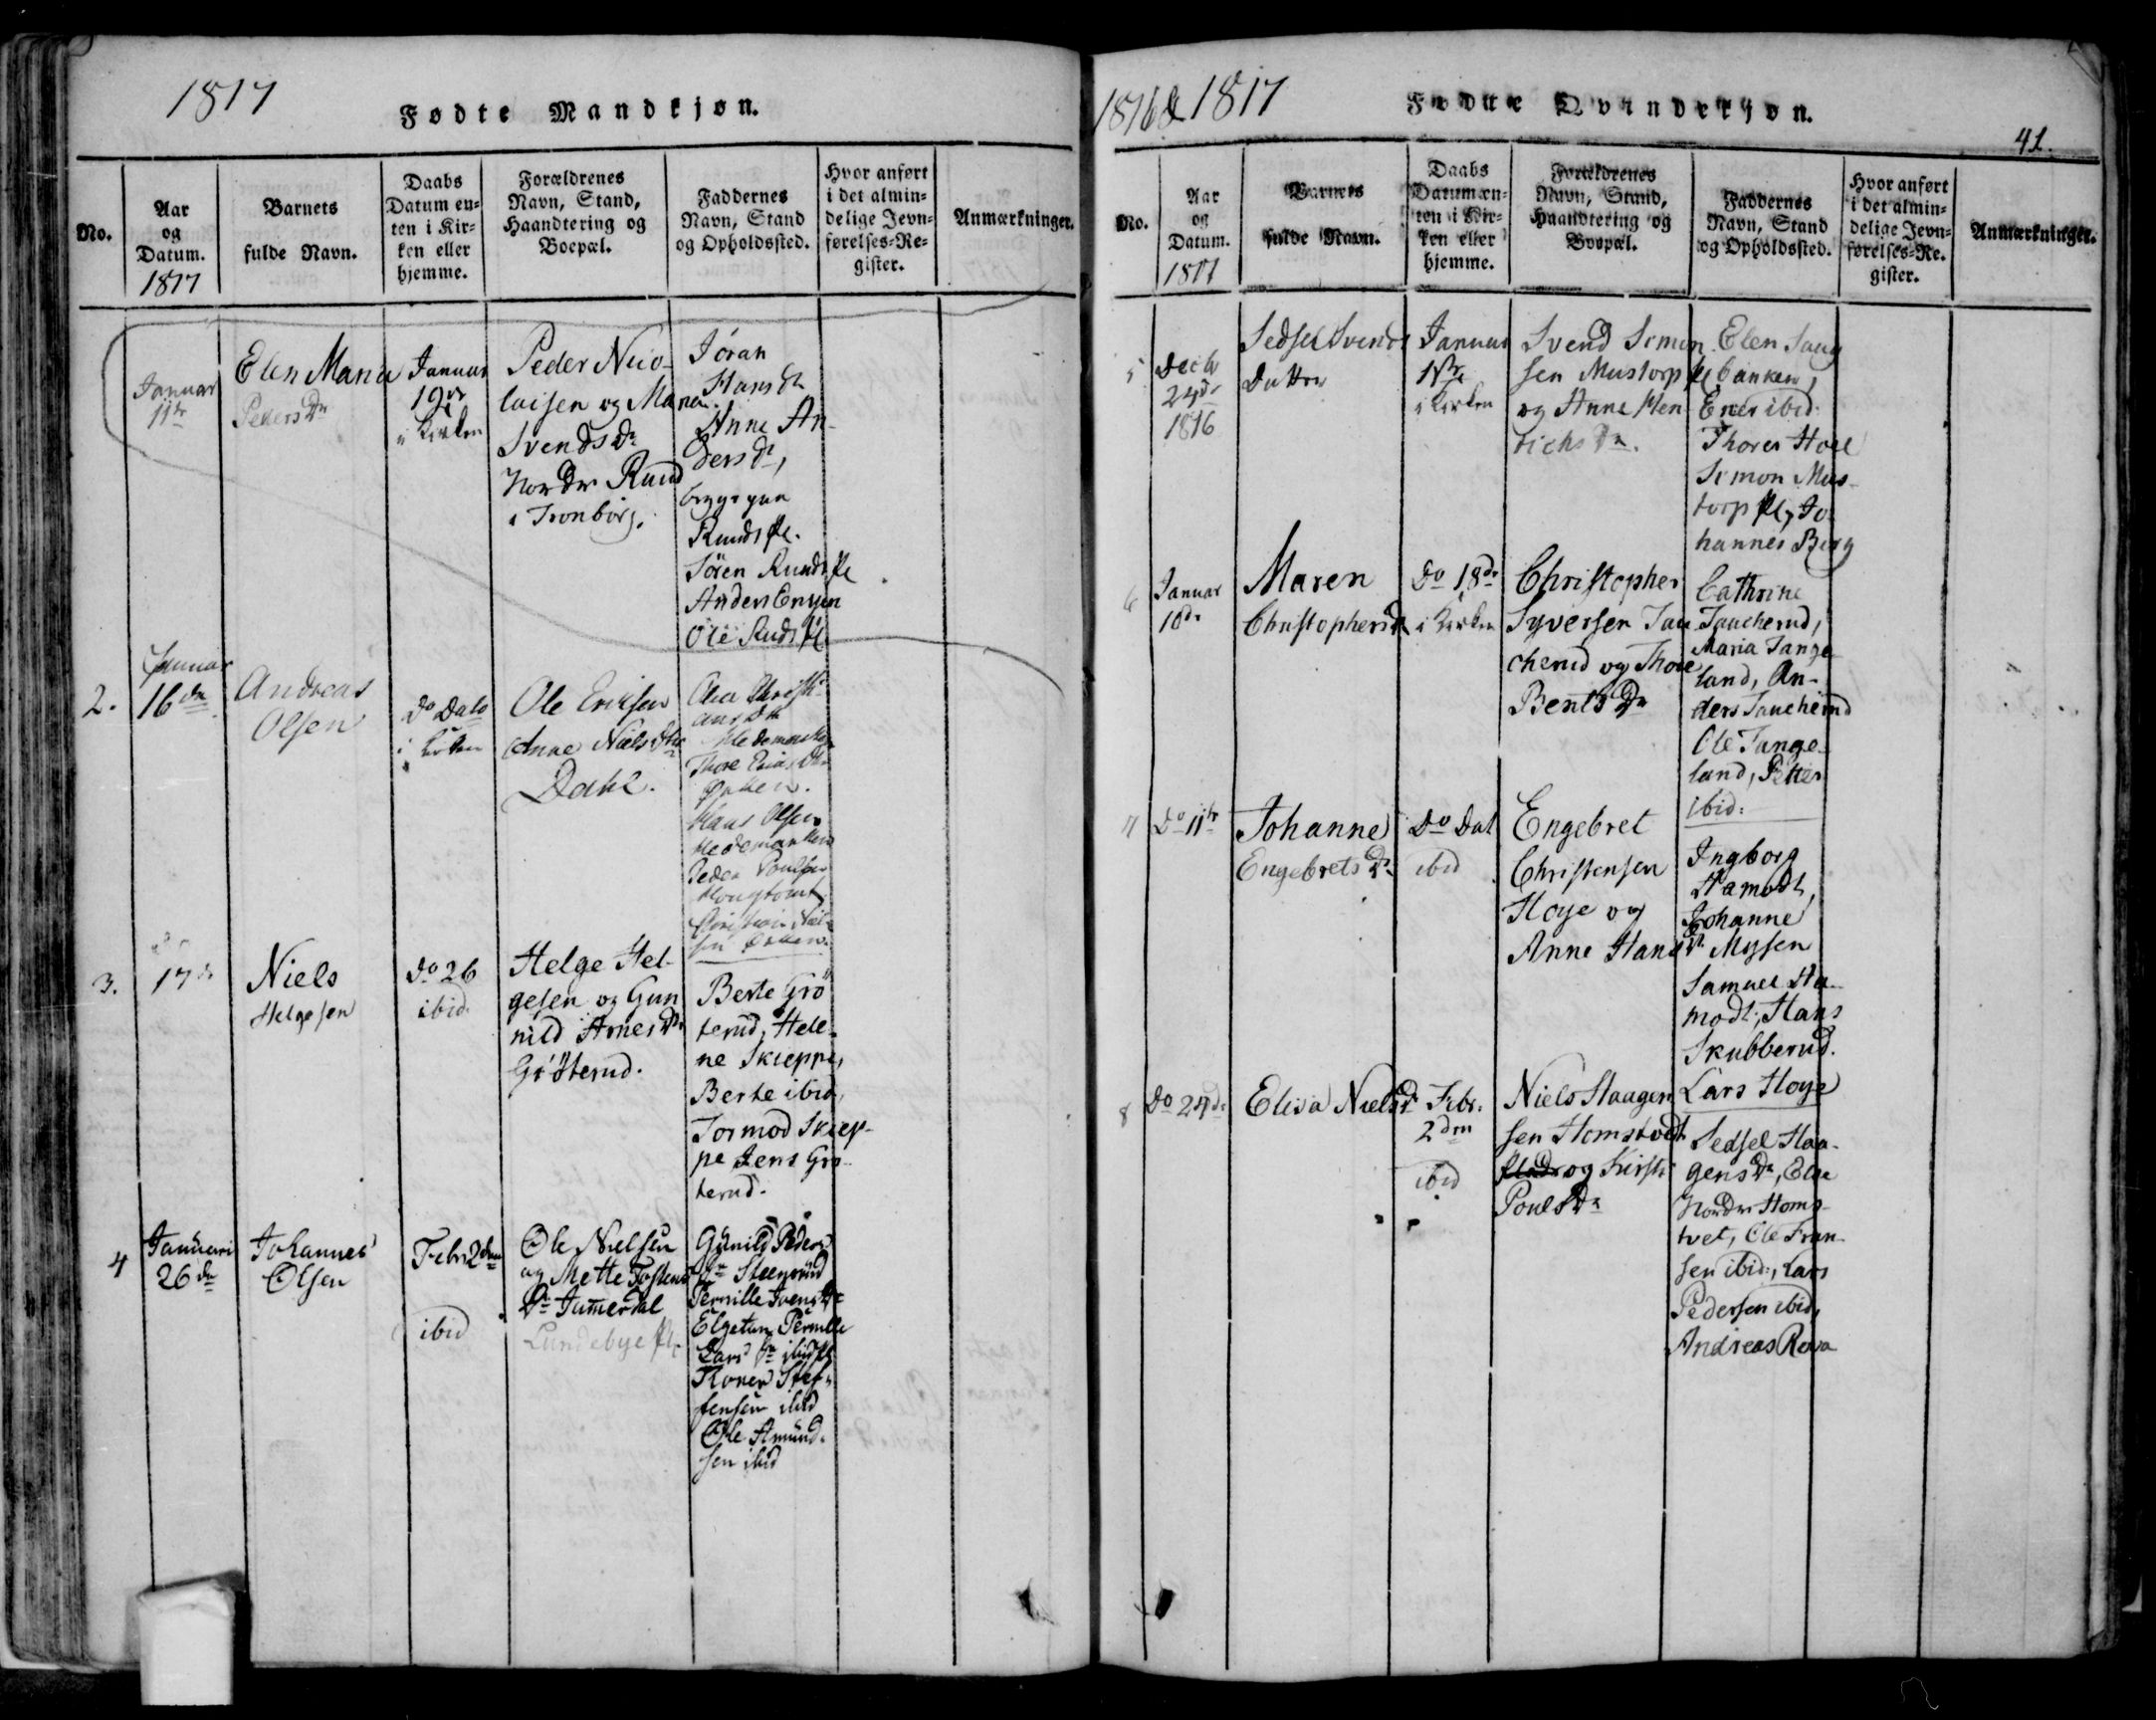 1817
Fødte Mandkjøn.
No.
Aar
og
Datum.
1817
Barnets
fulde Navn.
Daabs
Datum en-
ten i Kir-
ken eller
hjemme.
Forældrenes
Navn, Stand,
Haandtering og
Boepæl.
Faddernes
Navn, Stand
og Opholdssted.
Hvor anført
i det almin-
delige Jevn-
førelses-Re-
gister.
Anmærkninger.
Januar
11te
Elen Maria
Peders Dr
Januar
19de
i Kirken
Peder Nico-
laisen og Maria
Svends Dr
Nordre Ruud
i Tronborg.
Jöran
Hans Dr
Anne An-
ders Dr,
begge paa
Ruuds Pl.
Sören Ruuds Pl
Anders Engen
Ole Ruds Pl
2.
Januar
16de
Andreas
Olsen
Do Dato
i Kirken
Ole Eriksen
Anne Niels Dtr
Dahl.
Hedemarken
Thore
Hans Olsen
Hedemarken
Peder Poulsen
3.
17de
Niels
Helgesen
Do 26
ibid.
Helge Hel-
gesen og Gun
nild Arnes Dr
Gröterud.
Berte Grö
terud, Hele-
ne Skieppe,
Berte ibid,
Tormod Skiep-
pe Jens Grö-
terud.
4
Januari
26de
Johannes
Olsen
Febr 2den
ibid
Ole Nielsen
og Mette Tostens
Dr Jumerdal
Lundebye Pl.
Gunild Peders
Dr Steegrund
Pernille Ivens Dtr
Elgetun Pernille
Lars Dr ibid Pl
Stef-
fensen ibid
Ole Amund-
sen ibid
1816 & 1817
Fødte Qvindekjøn.
41.
No.
Aar
og
Datum.
1817
Barnets
fulde Navn.
Daabs
Datum en-
ten i Kir-
ken eller
hjemme.
Forældrenes
Navn, Stand,
Haandtering og
Boepæl.
Faddernes
Navn, Stand
og Opholdssted.
Hvor anført
i det almin-
delige Jevn-
førelses-Re-
gister.
Anmærkninger.
5
Decbr
24de
1816
Sedsel Svends
Datter
Januar
1ste
i Kirken
Svend Simon
sen Mustorp Pl
og Anne Hen
richs Dr.
Elen Saug
banken,
ibid.
Thorer Hoel
Simon Mus-
torp Pl, Jo-
hannes Berg
6
Januar
10de
Maren
Christophers Dr
Do 18de
i Kirken
Christopher
Syversen Tau
cherud og Thore
Bents Dr
Cathrine
Taucherud,
Maria Tange
land, An-
ders Taucherud
Ole Tange-
land, Petter
ibid:
7
Do 11te
Johanne
Engebrets Dr
Do Dat
ibid
Engebret
Christensen
Hoye og
Anne Hans Dr
Ingborg
Hamodt,
Johanne
Mysen
Samuel Ha-
modt, Hans
Skubberud.
Lars Hoye
8
Do 24de
Elisa Niels Dr
Febr.
2den
ibid
Niels Haagen
sen Homstvedt
og Kirsti
Pouls Dr
Sedsel Haa-
gens Dr, Else
Nordre Homs-
tvet, Ole Fran-
sen ibid:, Lars
Pedersen ibid,
Andreas